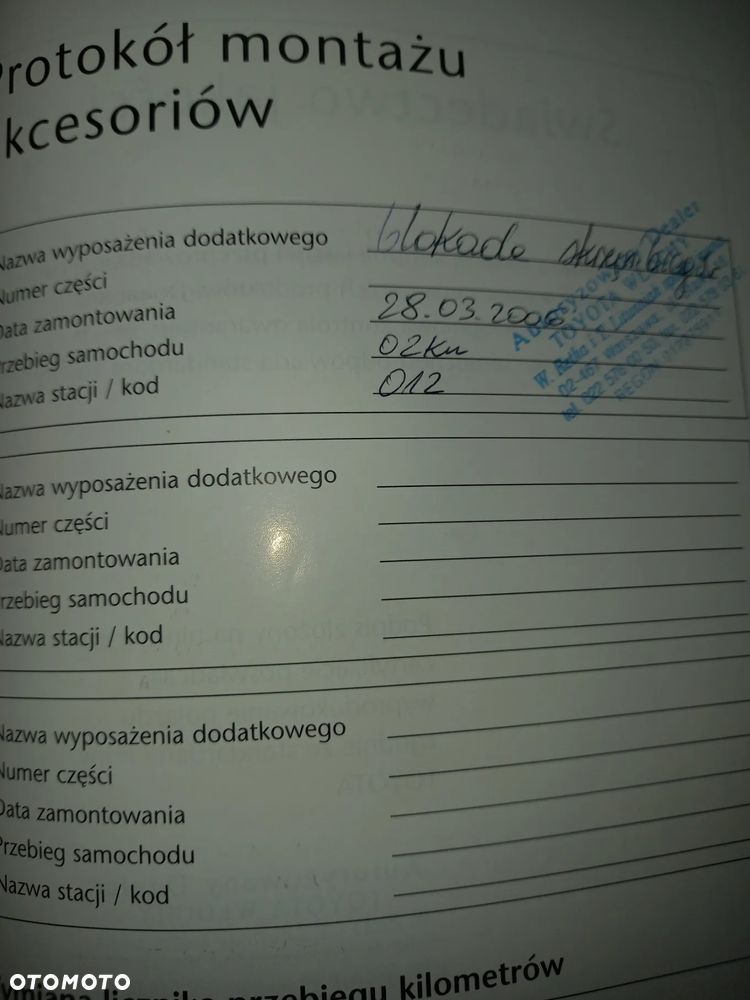 Protokół montażu
akcesoriów
Nazwa wyposażenia dodatkowego blokada skrzyni biegów
Numer części
Data zamontowania 28.03.2006
Przebieg samochodu 02km
Nazwa stacji / kod 012
Dealer
TOYOTA
02-467 Warszawa
Nazwa wyposażenia dodatkowego
Numer części
Data zamontowania
Przebieg samochodu
Nazwa stacji / kod
Nazwa wyposażenia dodatkowego
Numer części
Data zamontowania
Przebieg samochodu
Nazwa stacji / kod
Wymiana licznika przebiegu kilometrów
OTOMOTO